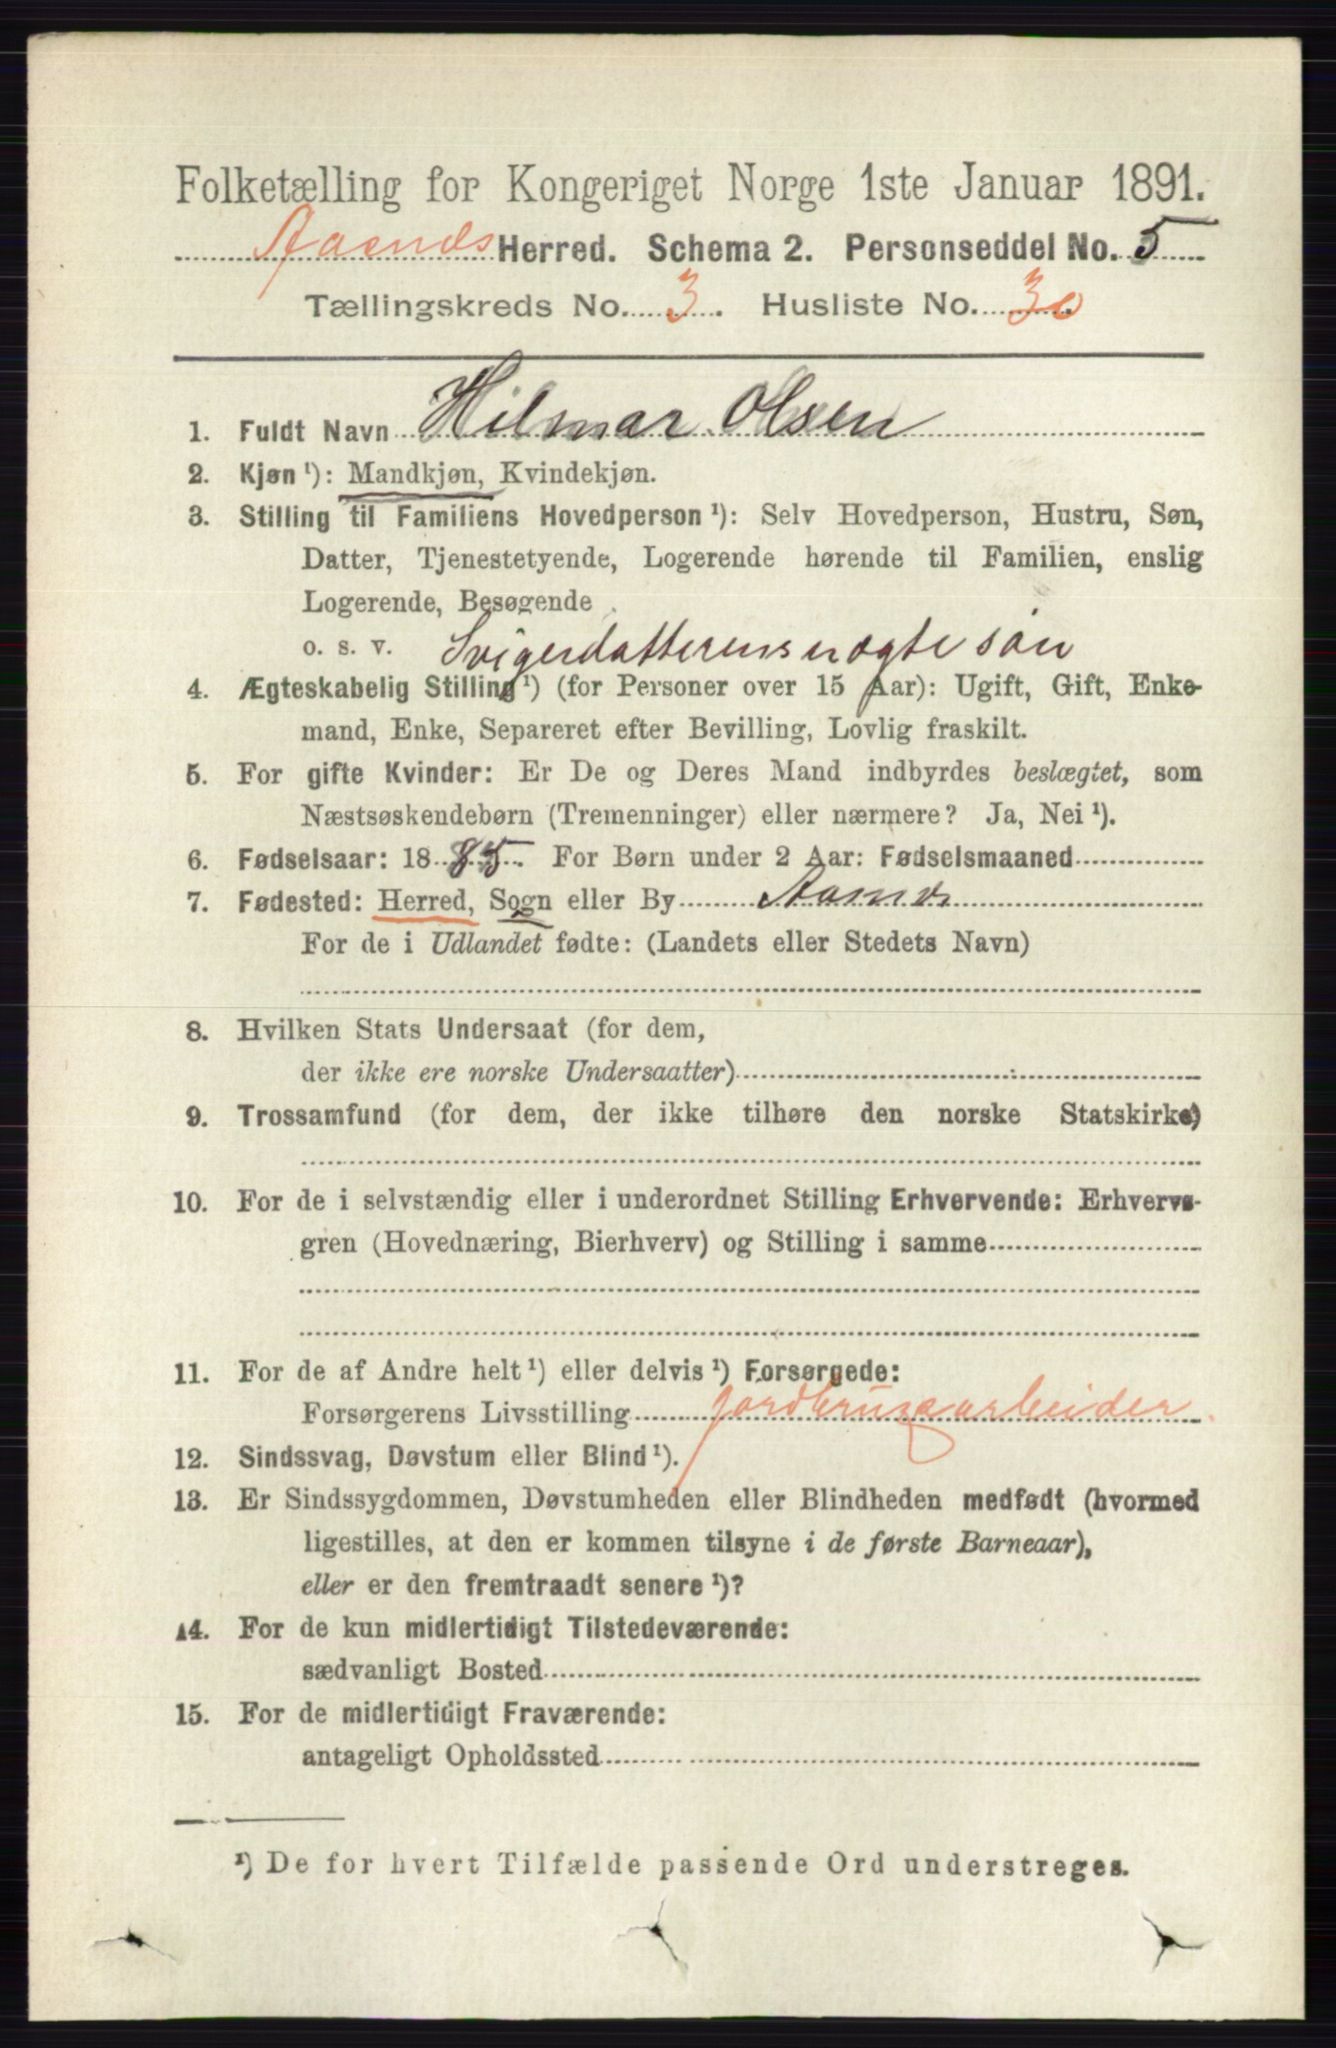 Folketælling for Kongeriget Norge 1ste Januar 1891.
Aasnes Herred. Schema 2. Personseddel No. 5
Tællingskreds No. 3. Husliste No. 30
1. Fuldt Navn Hilmar Olsen
2. Kjøn ¹): Mandkjøn, Kvindekjøn.
3. Stilling til Familiens Hovedperson ¹): Selv Hovedperson, Hustru, Søn,
Datter, Tjenestetyende, Logerende hørende til Familien, enslig
Logerende, Besøgende
o. s. v. Svigerdatterens uægte søn
4. Ægteskabelig Stilling ¹) (for Personer over 15 Aar): Ugift, Gift, Enke-
mand, Enke, Separeret efter Bevilling, Lovlig fraskilt.
5. For gifte Kvinder: Er De og Deres Mand indbyrdes beslægtet, som
Næstsøskendebørn (Tremenninger) eller nærmere? Ja, Nei ¹).
6. Fødselsaar: 1885. For Børn under 2 Aar: Fødselsmaaned
7. Fødested: Herred, Sogn eller By Aasnes
For de i Udlandet fødte: (Landets eller Stedets Navn)
8. Hvilken Stats Undersaat (for dem,
der ikke ere norske Undersaatter)
9. Trossamfund (for dem, der ikke tilhøre den norske Statskirke)
10. For de i selvstændig eller i underordnet Stilling Erhvervende: Erhvervs-
gren (Hovednæring, Bierhverv) og Stilling i samme
11. For de af Andre helt ¹) eller delvis ¹) Forsørgede:
Forsørgerens Livsstilling jordbrugsarbeider
12. Sindssvag, Døvstum eller Blind ¹).
13. Er Sindssygdommen, Døvstumheden eller Blindheden medfødt (hvormed
ligestilles, at den er kommen tilsyne i de første Barneaar),
eller er den fremtraadt senere ¹)?
14. For de kun midlertidigt Tilstedeværende:
sædvanligt Bosted
15. For de midlertidigt Fraværende:
antageligt Opholdssted
¹) De for hvert Tilfælde passende Ord understreges.